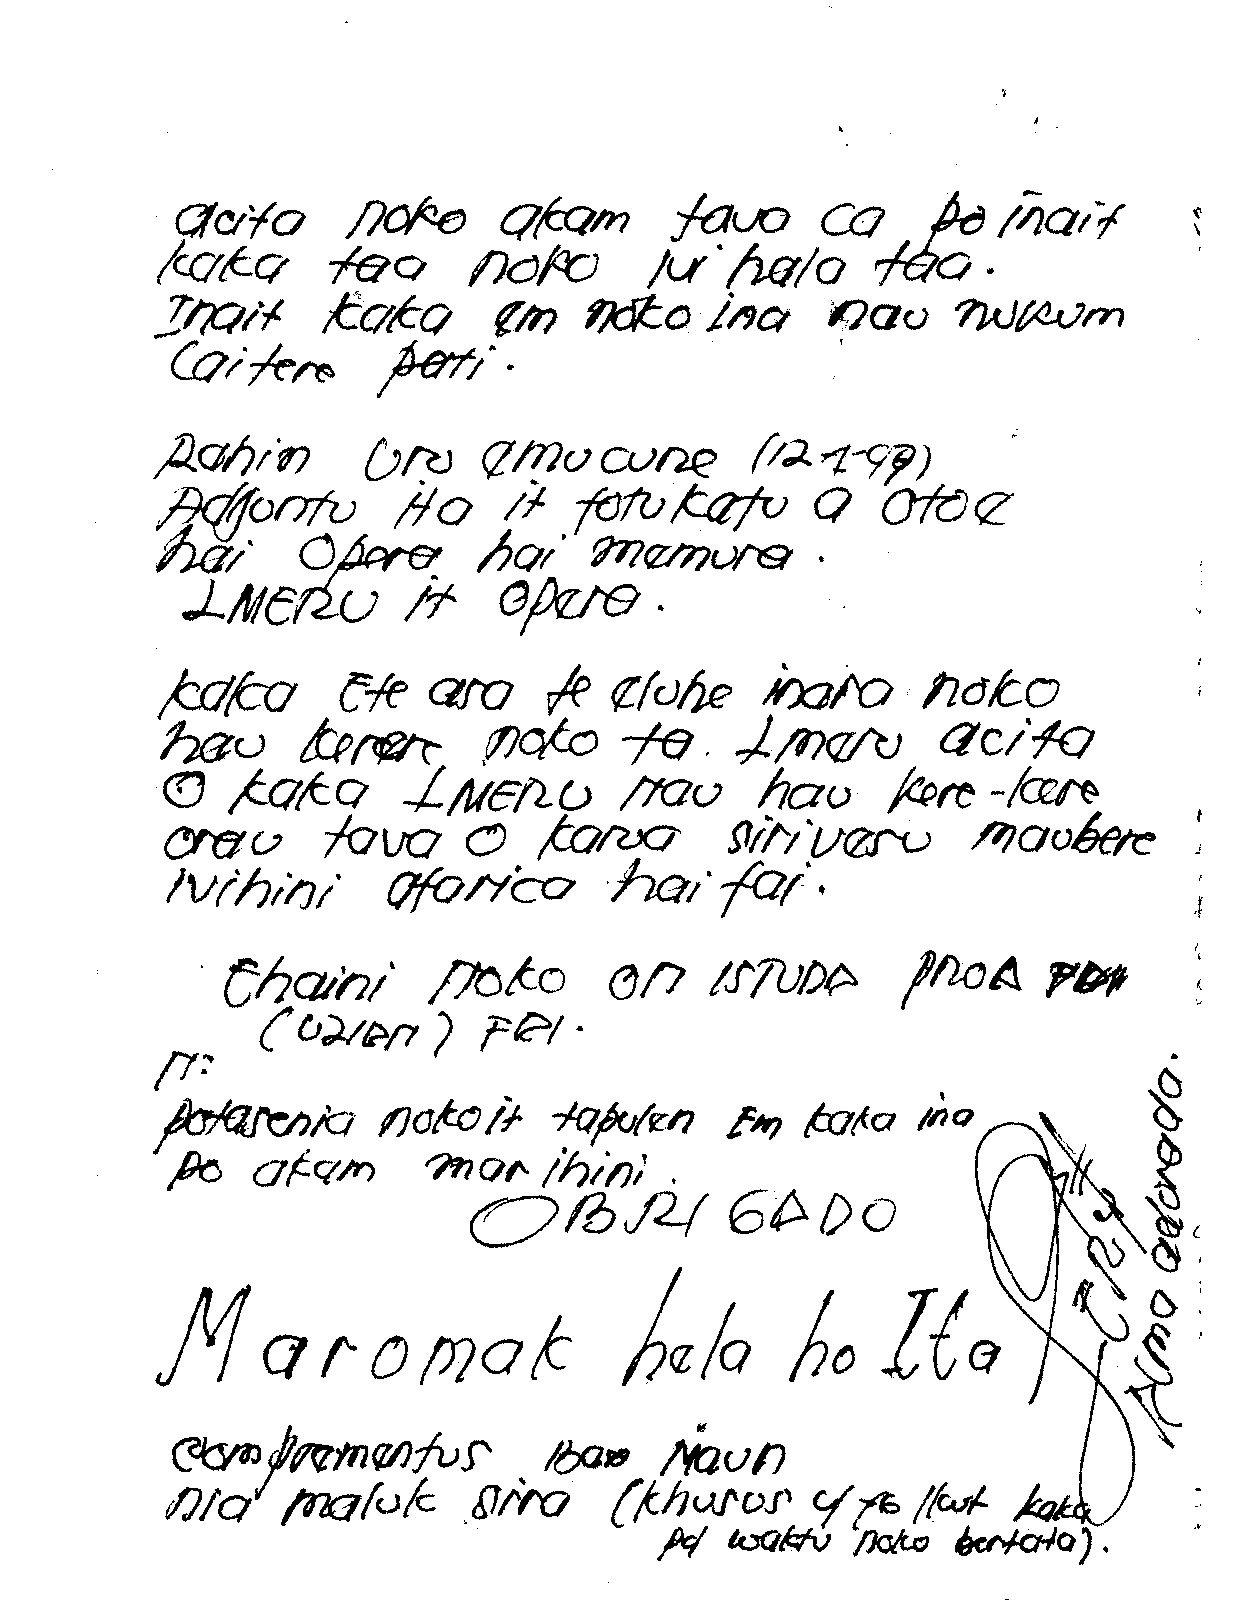 acita noko akam tavo ca po inait
kaka taa noko lui hala taa.
Inait kaka em noko ina nau nukum
Caitere pati.
Rahin Uru emucune (12-7-99)
Adjuntu ita it fotukatu a otoe
hai Opera hai mamura.
IMERU it opera.
kaka Ete asa te eluhe inara noko
hau kerere noko ta. Imeru acita
O kaka IMERU nau hau kere-kere
orau tava O karua sirivasu maubere
ivihini afarica hai fai.
Ehaini noko on ISTUDA PROA
FEI.
N:
potarsenia noko it tapulen Em kaka ina
po akam mar ihini.
OBRIGADO
Maromak hela ho Ita
Alma adorada.
comprementus Maun
nia maluk sira (khusus yg ikut kaka
pd waktu noko bertata).